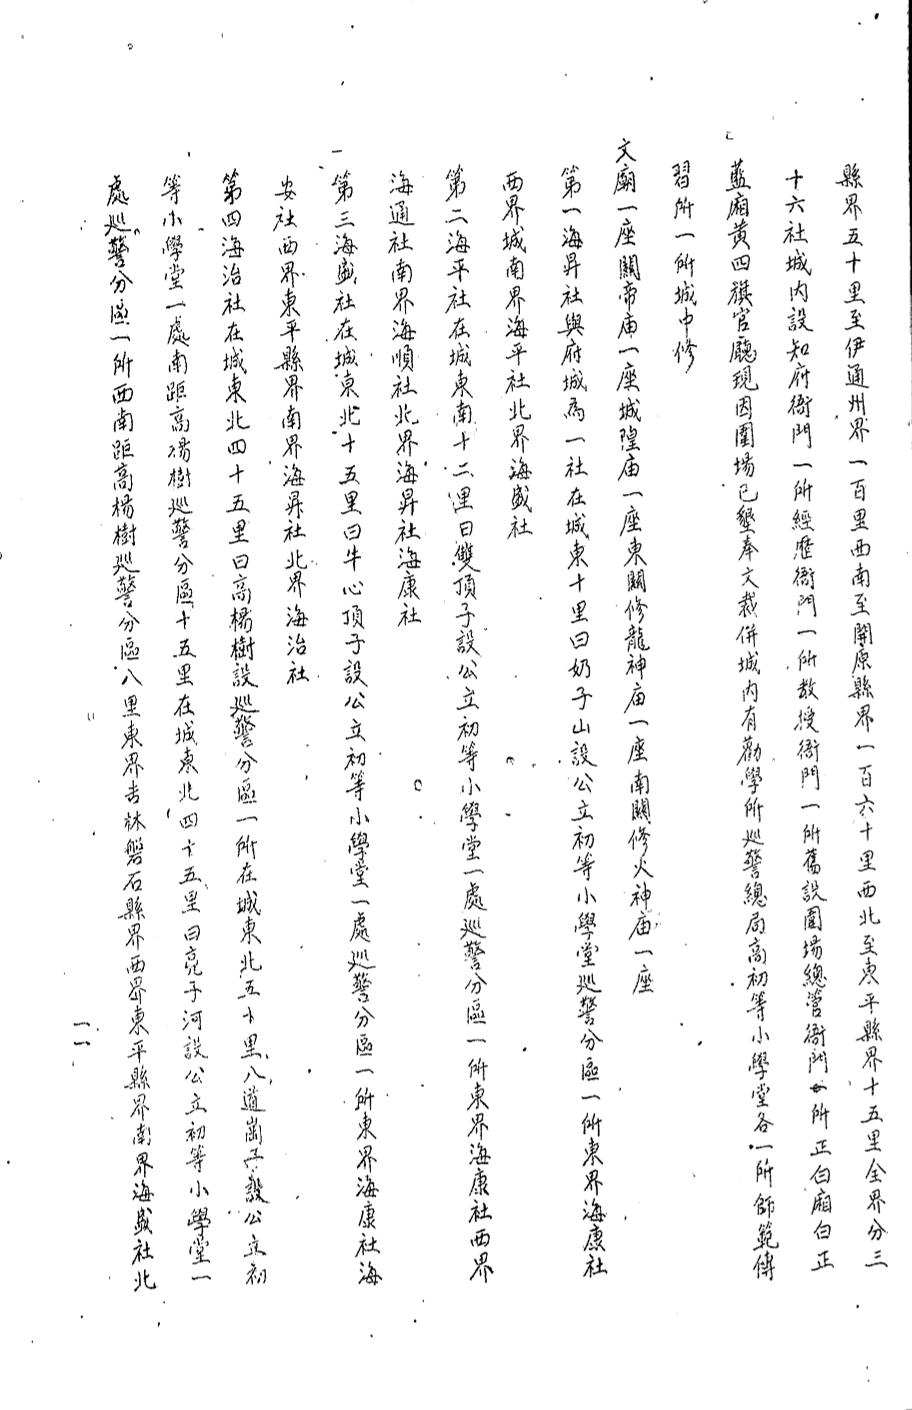 縣界五十里至伊通州界一百里西南至開原縣界一百六十里西北至東平縣界十五里全界分三
十六社城内設知府衙門一所經歷衙門一所教授衙門一所舊設圍場總管衙門一所正白廂白正
藍廂黃四旗官廳現因圍場已墾奉文裁併城内有勸學所巡警總局高初等小學堂各一所師範傳
習所一所城中修
文廟一座關帝庙一座城隍庙一座東關修龍神庙一座南關修火神庙一座
第一海昇社與府城為一社在城東十里曰奶子山設公立初等小學堂巡警分區一所東界海康社
西界城南界海平社北界海盛社
第二海平社在城東南十二里曰雙頂子設公立初等小學堂一處巡警分區一所東界海康社西界
海通社南界海順社北界海昇社海康社
第三海盛社在城東北十五里曰牛心頂子設公立初等小學堂一處巡警分區一所東界海康社海
安社西界東平縣界南界海昇社北界海治社
第四海治社在城東北四十五里曰高楊樹設巡警分區一所在城東北五十里八道崗子設公立初
等小學堂一處南距高楊樹巡警分區十五里在城東北四十五里曰亮子河設公立初等小學堂一
處巡警分區一所西南距高楊樹巡警分區八里東界吉林磐石縣界西界東平縣界南界海盛社北
一一